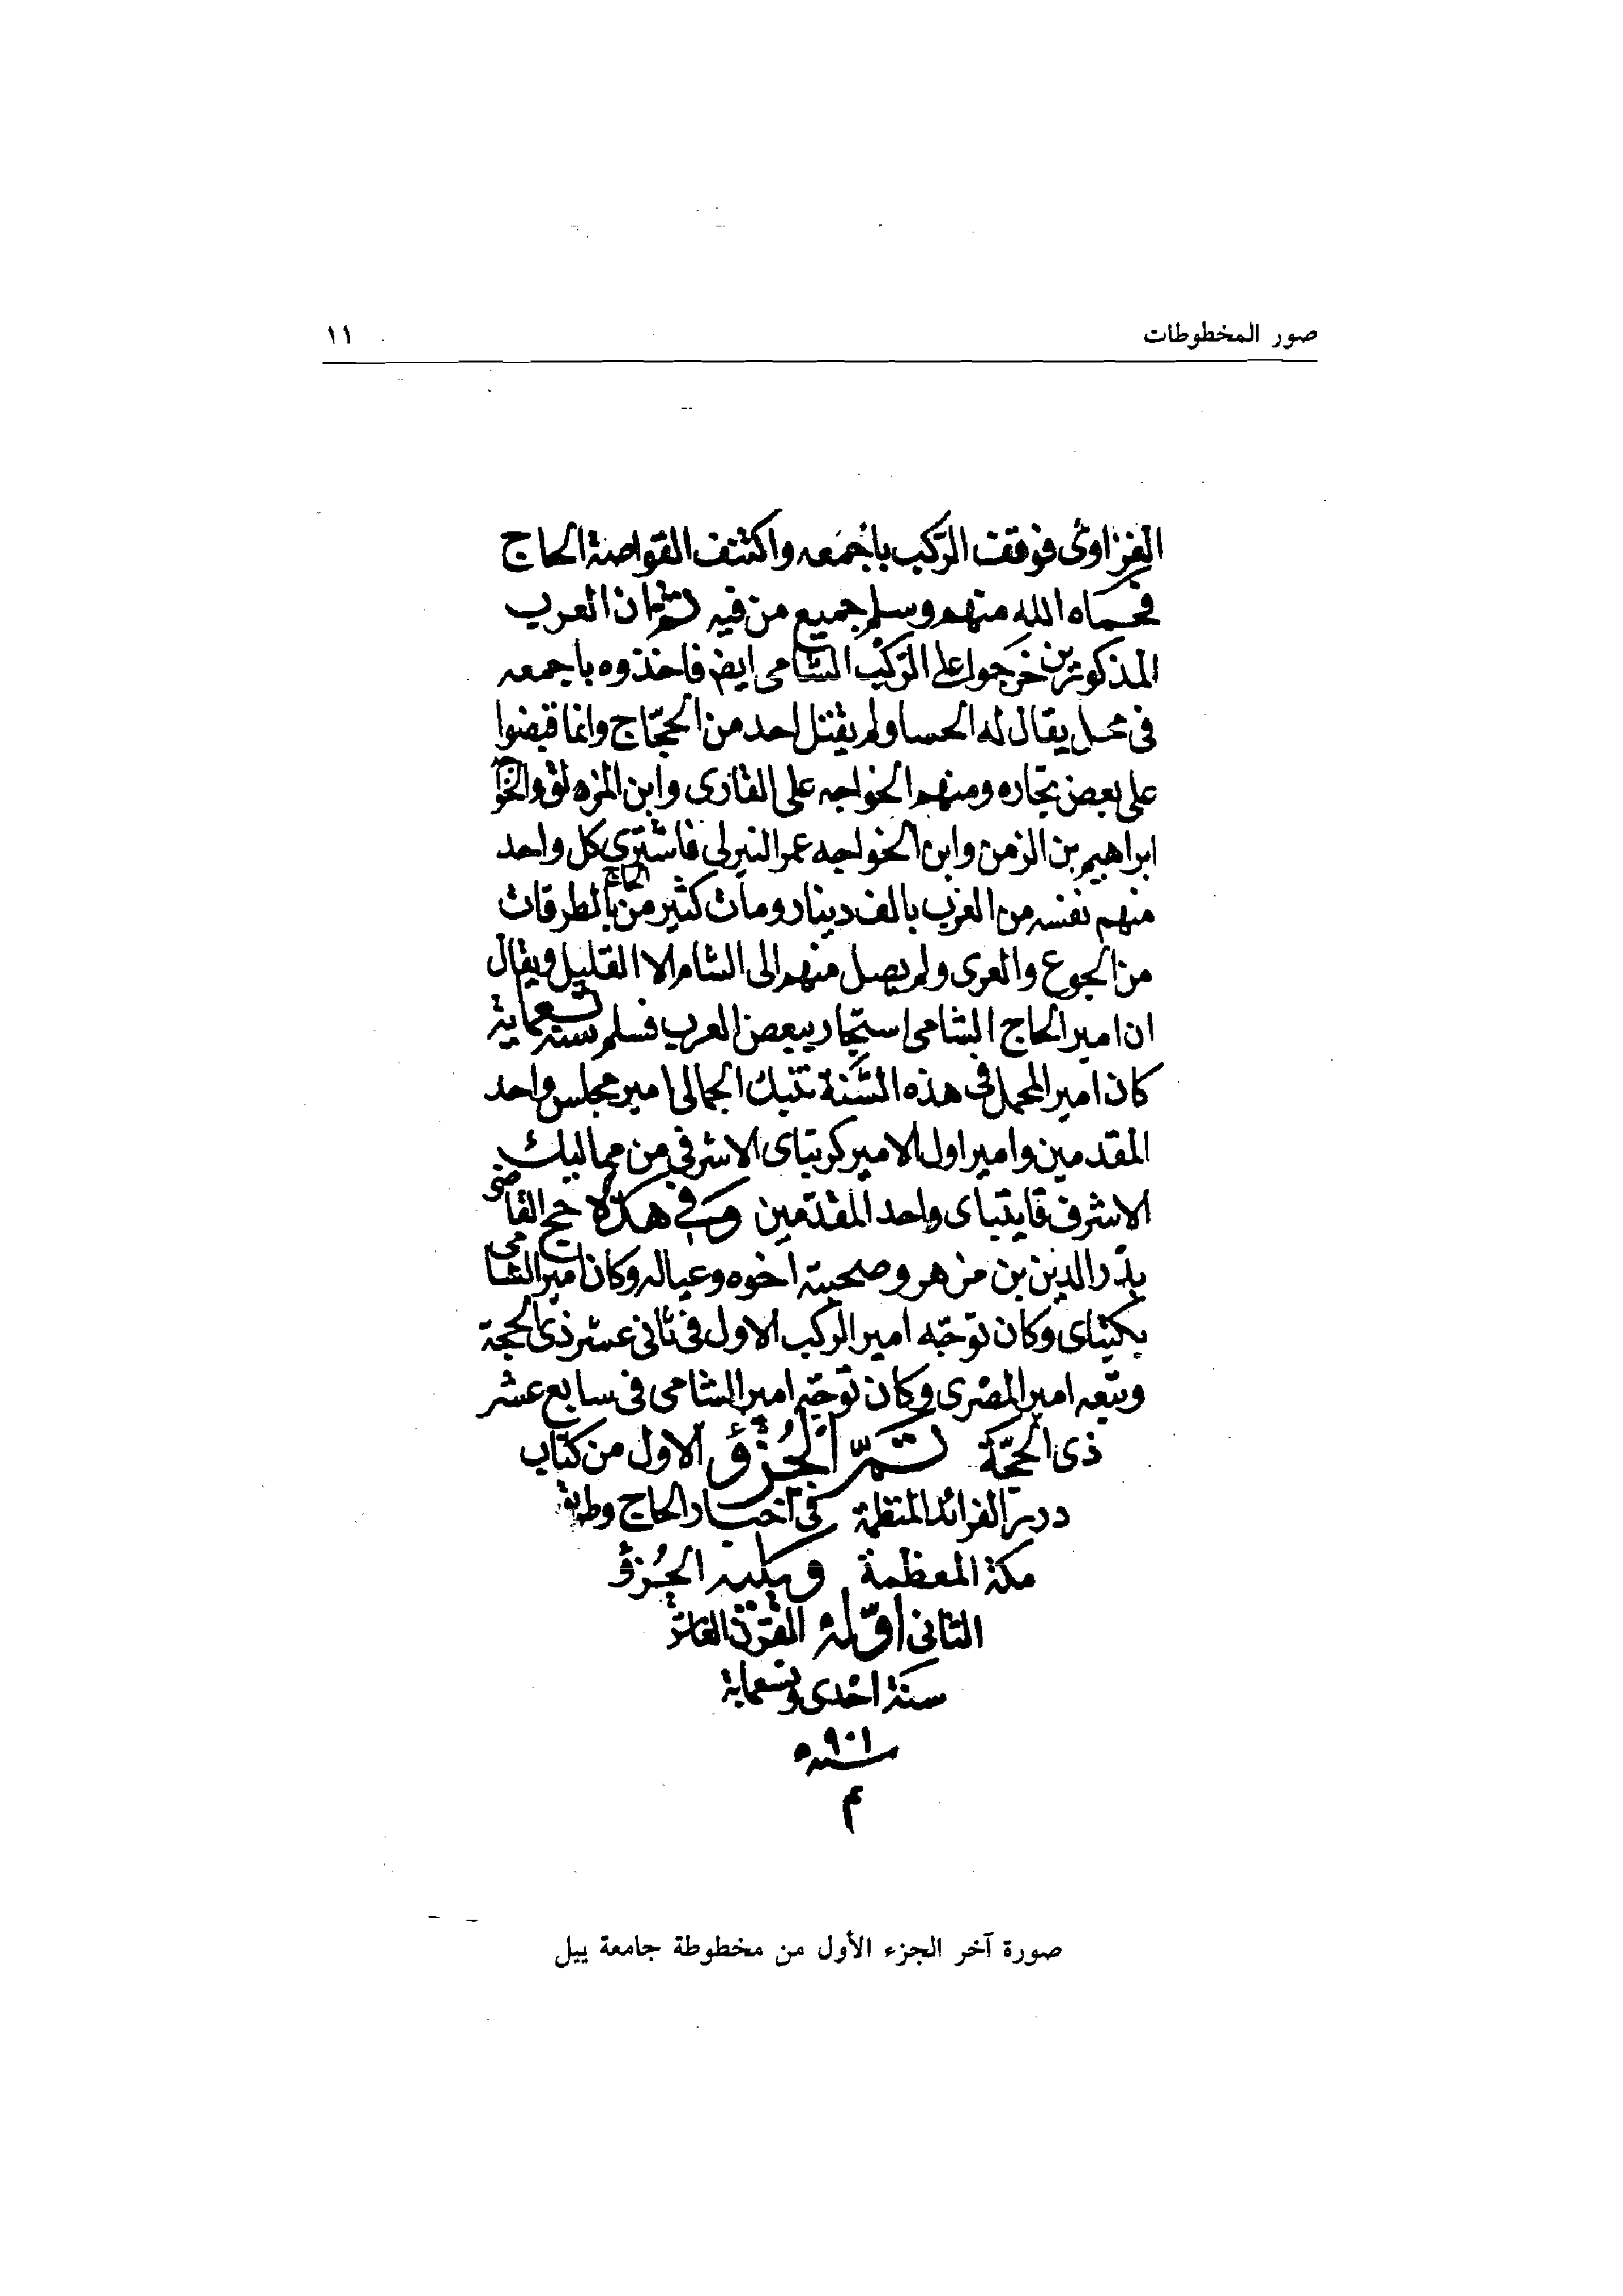 صور المخطوطات ١١
الفزاوى فوقف الركب باجمعه واكتنف القواصة الحاج
فحماه الله منهم وسلم جميع من فيه ثم ان العرب
المذكورين خرجوا على الركب الشامى ايض فاخذوه باجمعه
فى محل يقال له الحسا ولم يقتل احد من الحجاج وانما قبضوا
على بعض تجاره ومنهم الخواجه على القارى وابن المزه لق والخوا
ابراهيم بن الزمن وابن الخواجه عمر النيربى فاشترى كل واحد
منهم نفسه من العرب بالف دينار ومات كثير من الحاج بالطرقات
من الجوع والعرى ولم يصل منهم الى الشام الا القليل ويقال
ان امير الحاج الشامى استجار ببعض العرب فسلم سنة تسعماية
كان امير المحمل فى هذه السنة تنبك الجمالى امير مجلس واحد
المقدمين وامير اول الامير كرتباى الاشرفى من مماليك
الاشرف قايتباى واحد المقدمين وفى هذه حج القاضى
بدر الدين بن مزهر وصحبته اخوه وعياله وكان امير الشامى
بكتباى وكان توجه امير الركب الاول فى ثانى عشر ذى الحجة
وتبعه امير المصرى وكان توجه امير الشامى فى سابع عشر
ذى الحجة تم الجزؤ الاول من كتاب
درر الفرائد المنظمة فى اخبار الحاج وطريق
مكة المعظمة ويليه الجزؤ
الثانى اوله القرن العاشر
سنة احدى وتسعماية
سنه ٩٠١
م
صورة آخر الجزء الأول من مخطوطة جامعة ييل